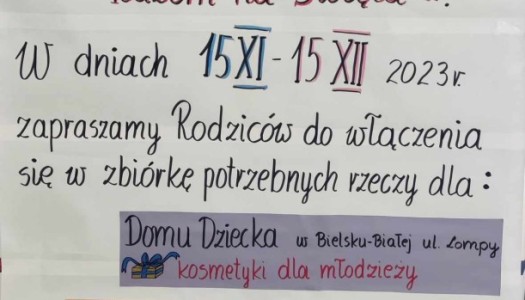 W dniach 15 XI - 15 XII 2023r.
zapraszamy Rodziców do włączenia
się w zbiórkę potrzebnych rzeczy dla:
Domu Dziecka w Bielsku-Białej ul. Lompy
kosmetyki dla młodzieży